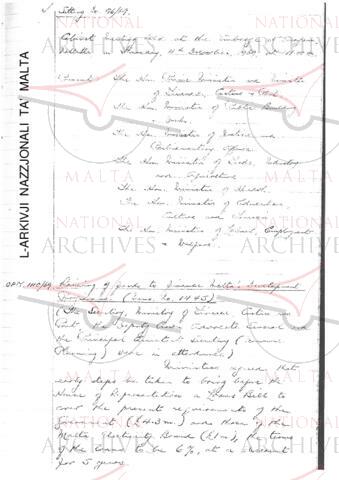 Sitting No. 76/69.
Cabinet Meeting held at the Auberge
Valletta on Thursday, 11th December, 1969, at
Present The Hon. Prime Minister and Minister
of Finance, Customs & Port.
The Hon. Minister of Public Building
& Works.
The Hon. Minister of Justice and
Parliamentary Affairs.
The Hon. Minister of Trade, Industry
and Agriculture
The Hon. Minister of Health.
The Hon. Minister of Education,
Culture and Tourism.
The Hon. Minister of Labour, Employment
& Welfare.
OPM. 1110/69. Raising of funds to finance Malta's Development
Programme (Memo. No. 1445)
(The Secretary, Ministry of Finance, Customs and
Port, the Deputy
and
the Principal Assistant Secretary
Planning) were in attendance.)
Ministers agreed that
early steps be taken to bring before the
House of Representatives a Loans Bill to
cover the present requirements of the
Government and those of the
Malta Electricity Board (£1m), the terms
of the loan to be 6%, at a discount
for 5 years.
L-ARKIVJI NAZZJONALI TA' MALTA
NATIONAL
ARCHIVES
MALTA